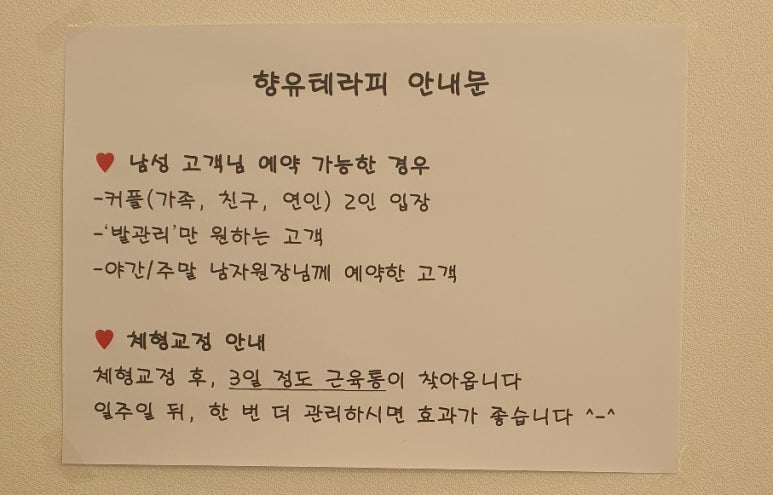 향유테라피 안내문
♥ 남성 고객님 예약 가능한 경우
-커플(가족, 친구, 연인) 2인 입장
-'발관리'만 원하는 고객
-야간/주말 남자원장님께 예약한 고객
♥ 체형교정 안내
체형교정 후, 3일 정도 근육통이 찾아옵니다
일주일 뒤, 한 번 더 관리하시면 효과가 좋습니다 ^-^